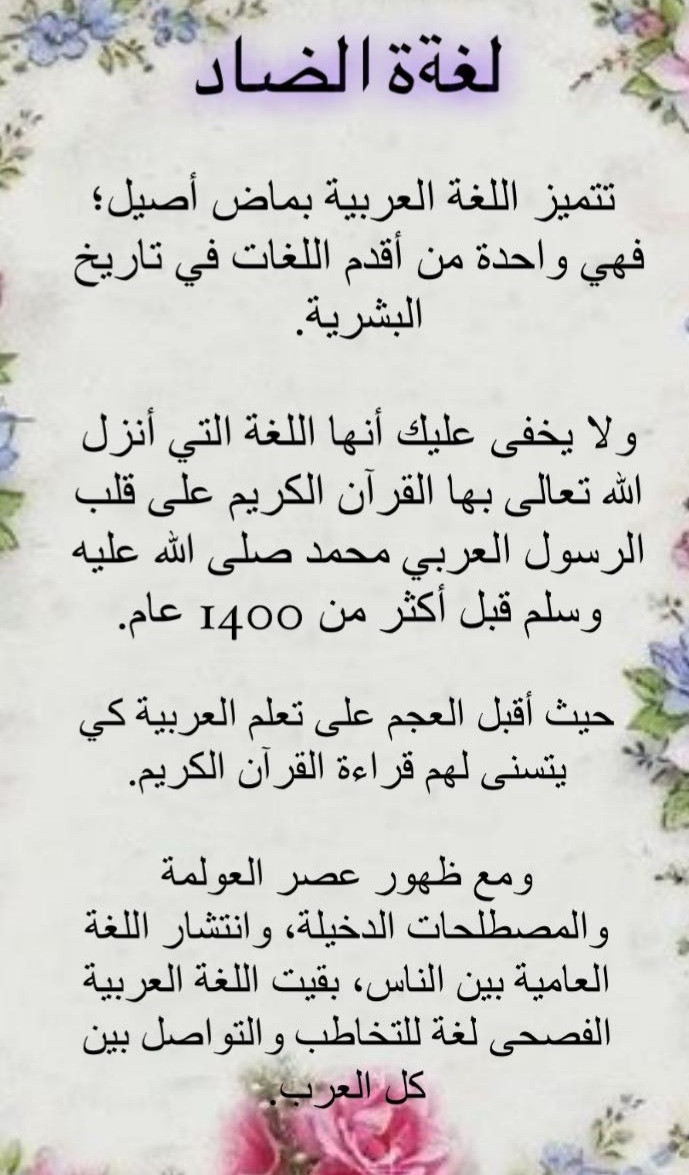 لغةة الضاد
تتميز اللغة العربية بماض أصيل؛
فهي واحدة من أقدم اللغات في تاريخ
البشرية.
ولا يخفى عليك أنها اللغة التي أنزل
الله تعالى بها القرآن الكريم على قلب
الرسول العربي محمد صلى الله عليه
وسلم قبل أكثر من 1400 عام.
حيث أقبل العجم على تعلم العربية كي
يتسنى لهم قراءة القرآن الكريم.
ومع ظهور عصر العولمة
والمصطلحات الدخيلة، وانتشار اللغة
العامية بين الناس، بقيت اللغة العربية
الفصحى لغة للتخاطب والتواصل بين
كل العرب.